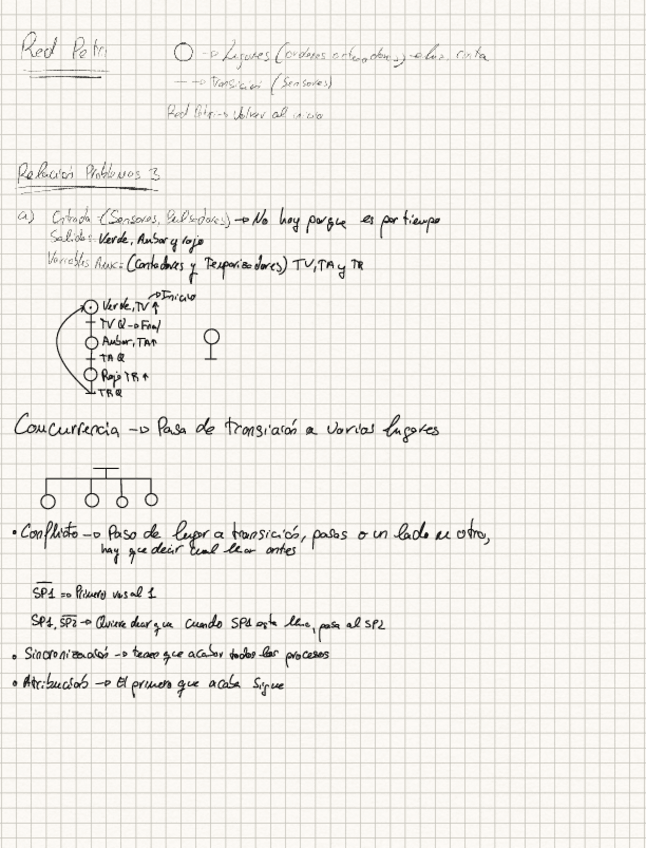 Red Petri
○ → Lugares (ordenes actuadores) → luz, cinta
— → Transición (Sensores)
Red Petri → Volver al inicio
Relación Problemas 3
a) Entrada: (Sensores, Pulsadores) → No hay porque es por tiempo
Salidas: Verde, Ambar y rojo
Variables Aux = (Contadores y Temporizadores) TV, TA y TR
→ Inicio
Verde, TV ↑
TV Q → Final
Ambar, TA↑
TA Q
Rojo TR ↑
TR Q
Concurrencia → Pasa de transición a varios lugares
• Conflicto → Paso de lugar a transición, pasas o un lado u otro,
hay que decir cual leer antes
S̅P̅1̅ → Primero vas al 1
SP1, S̅P̅2̅ → Quiere decir que cuando SP1 esta lleno, pasa al SP2
• Sincronización → tienen que acabar todos los procesos
• Atribución → El primero que acaba sigue